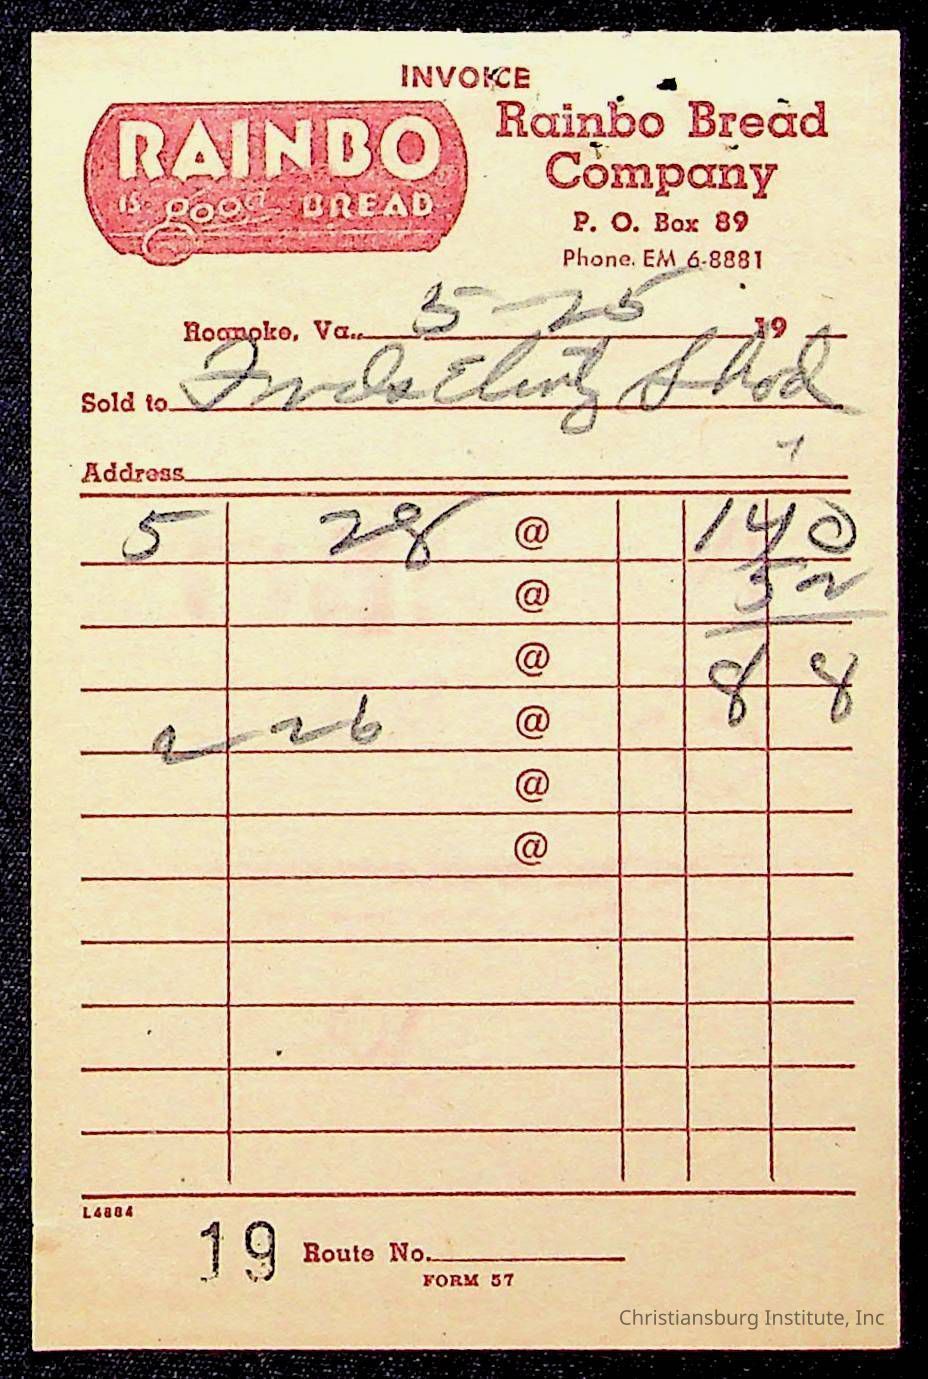 INVOICE
RAINBO
IS good BREAD
Rainbo Bread
Company
P. O. Box 89
Phone. EM 6-8881
Roanoke, Va. 5-25 19
Sold to
Address
5 28 @ 140
@ 52
@ 88
2 26 @
@
@
L4884
19 Route No.
FORM 57
Christiansburg Institute, Inc